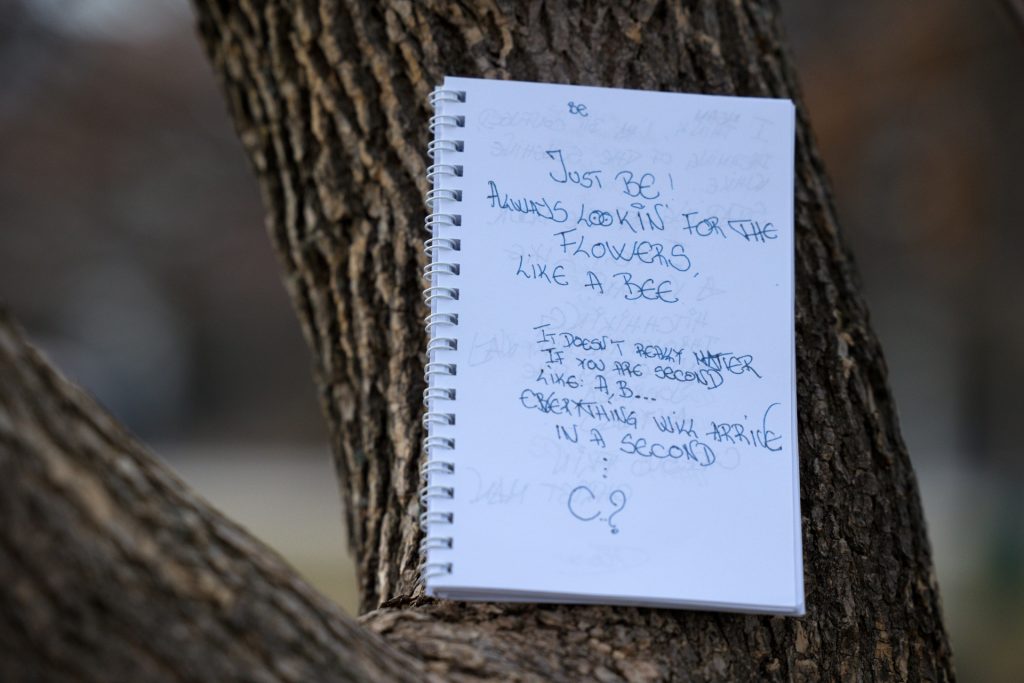 BE
JUST BE!
ALWAYS LOOKIN' FOR THE
FLOWERS,
LIKE A BEE,
IT DOESN'T REALLY MATTER
IF YOU ARE SECOND
LIKE: A, B...
EBERYTHING WILL ARRIVE
IN A SECOND
:
C..?